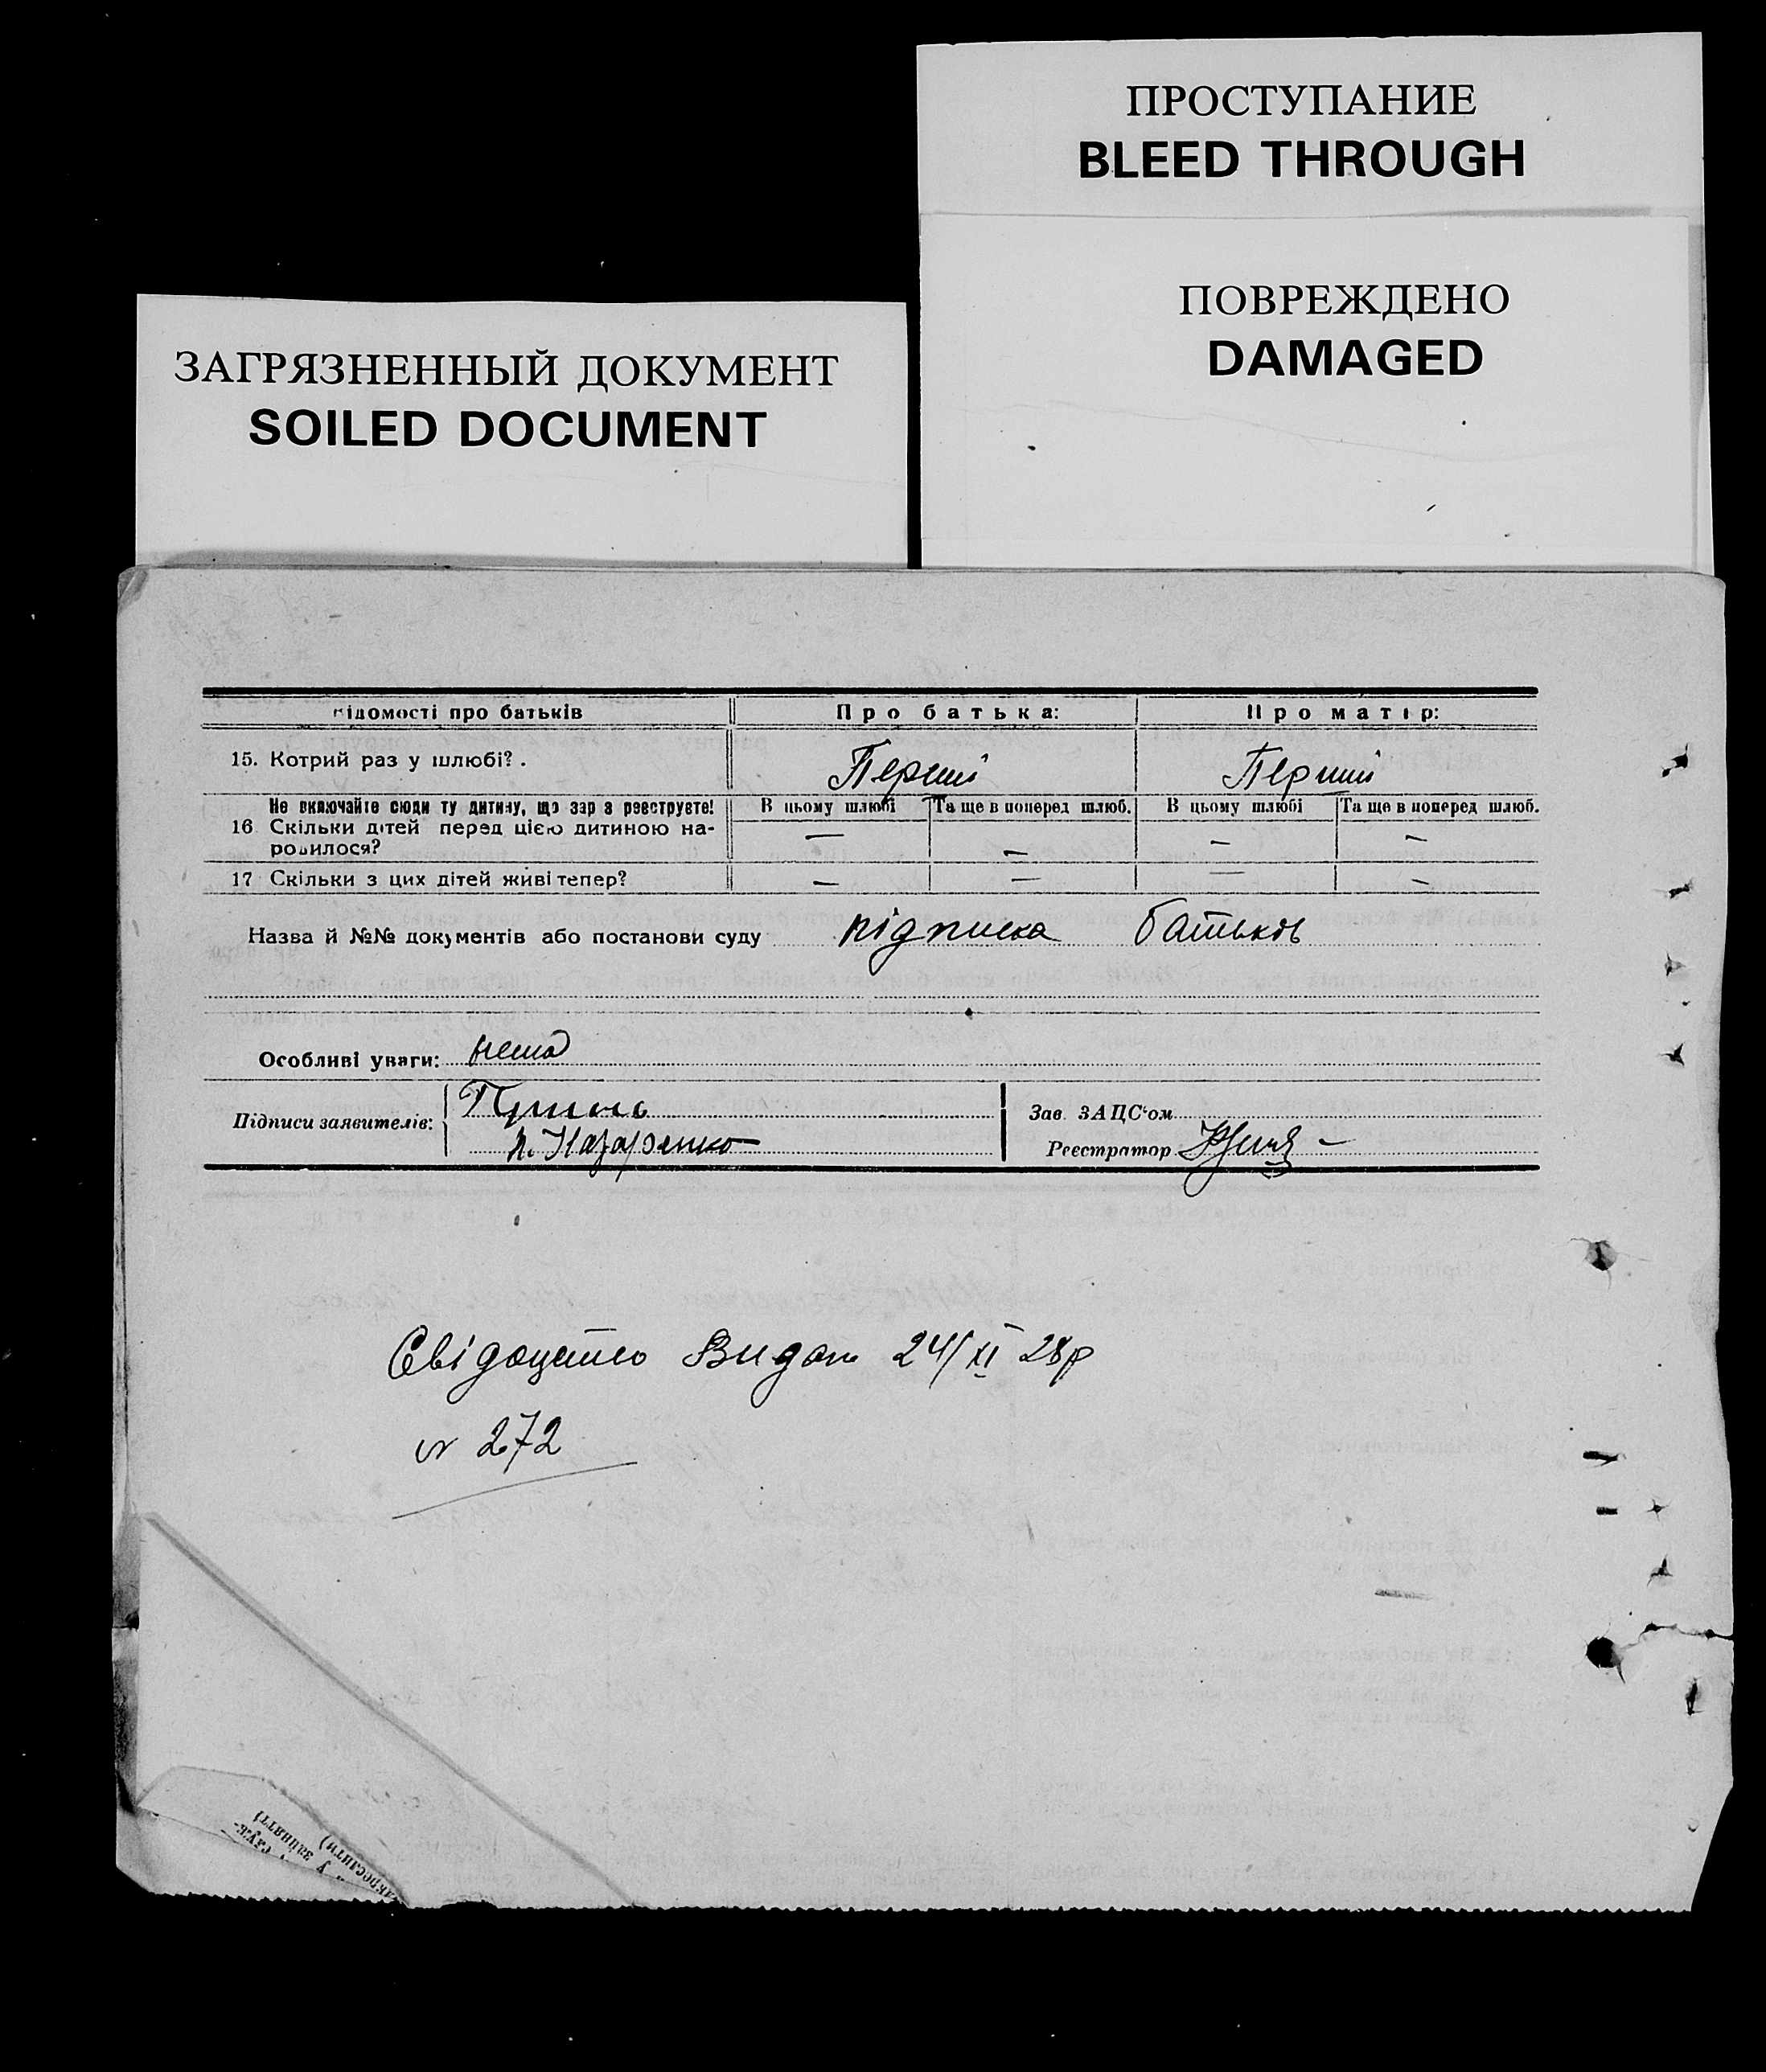 ПРОСТУПАНИЕ
BLEED THROUGH
ПОВРЕЖДЕНО
DAMAGED
ЗАГРЯЗНЕННЫЙ ДОКУМЕНТ
SOILED DOCUMENT
ідомості про батьків Про батька: Про матір:
15. Котрий раз у шлюбі? . Перший Перший
Не включайте сюди ту дитину, що зар з реєструєте! В цьому шлюбі Та ще в поперед шлюб. В цьому шлюбі Та ще в поперед шлюб.
16 Скільки дітей перед цією дитиною на- — — — —
родилося?
17 Скільки з цих дітей живі тепер? — — — —
Назва й №№ документів або постанови суду підписка батьків
Особливі уваги: нема
Підписи заявителів: Зав. ЗАЦС'ом
п. Назаренко Реєстратор
Свідоцтво Видан 24/XI 28р
№ 272
у зайнятті)